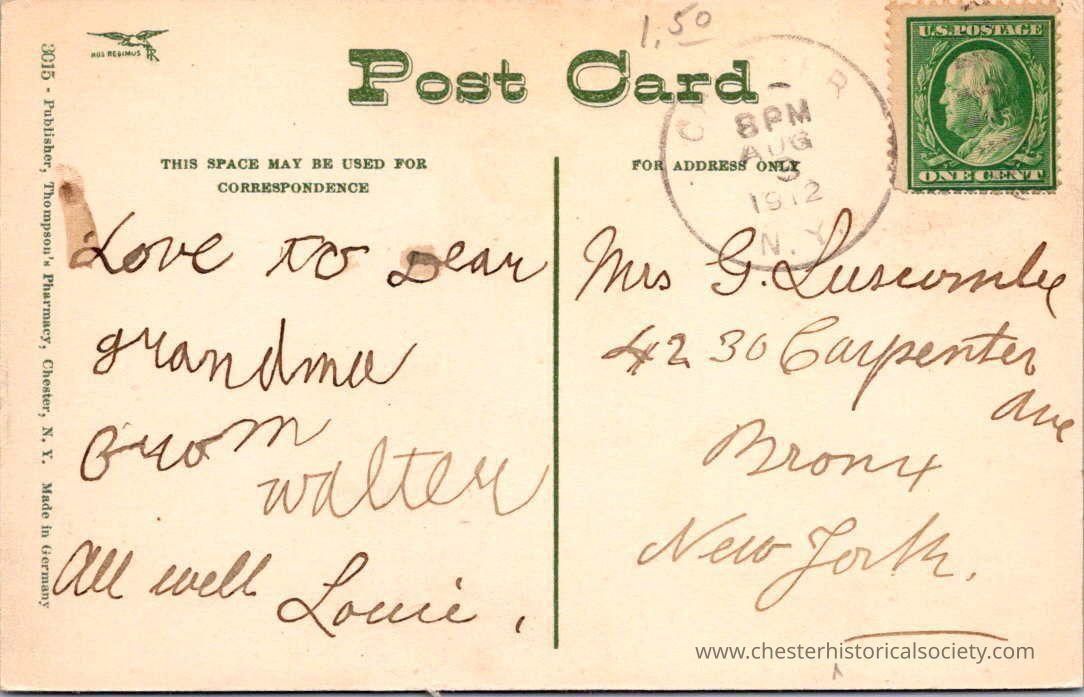 1.50
Post Card
NOS REGIMUS
THIS SPACE MAY BE USED FOR
CORRESPONDENCE
FOR ADDRESS ONLY
CHESTER
8 PM
AUG
1912
N.Y.
U.S. POSTAGE
ONE CENT
3015 - Publisher, Thompson's Pharmacy, Chester, N. Y. Made in Germany
Love to Dear
grandma
From
Walter
All well Louie,
Mrs G. Luscombe
4230 Carpenter
Ave
Bronx
New York.
www.chesterhistoricalsociety.com